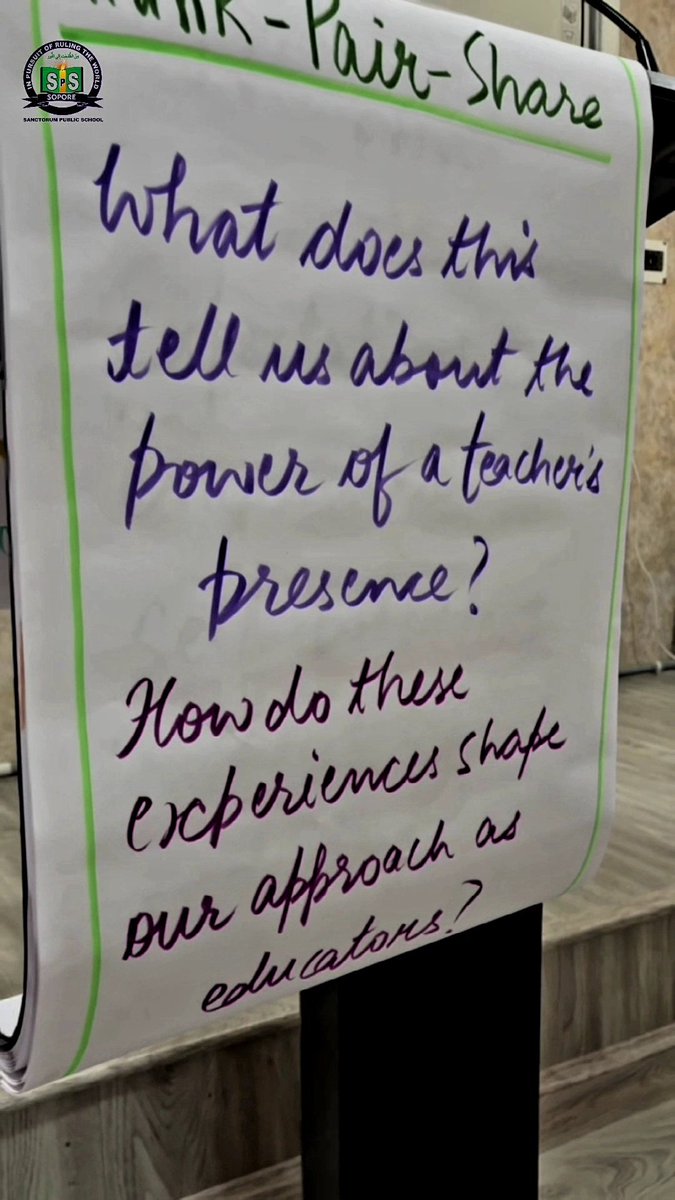 IN PURSUIT OF RULING THE WORLD
SPS
SOPORE
SANCTORUM PUBLIC SCHOOL
-Pair-Share
What does this
tell us about the
power of a teacher's
presence?
How do these
experiences shape
our approach as
educators?